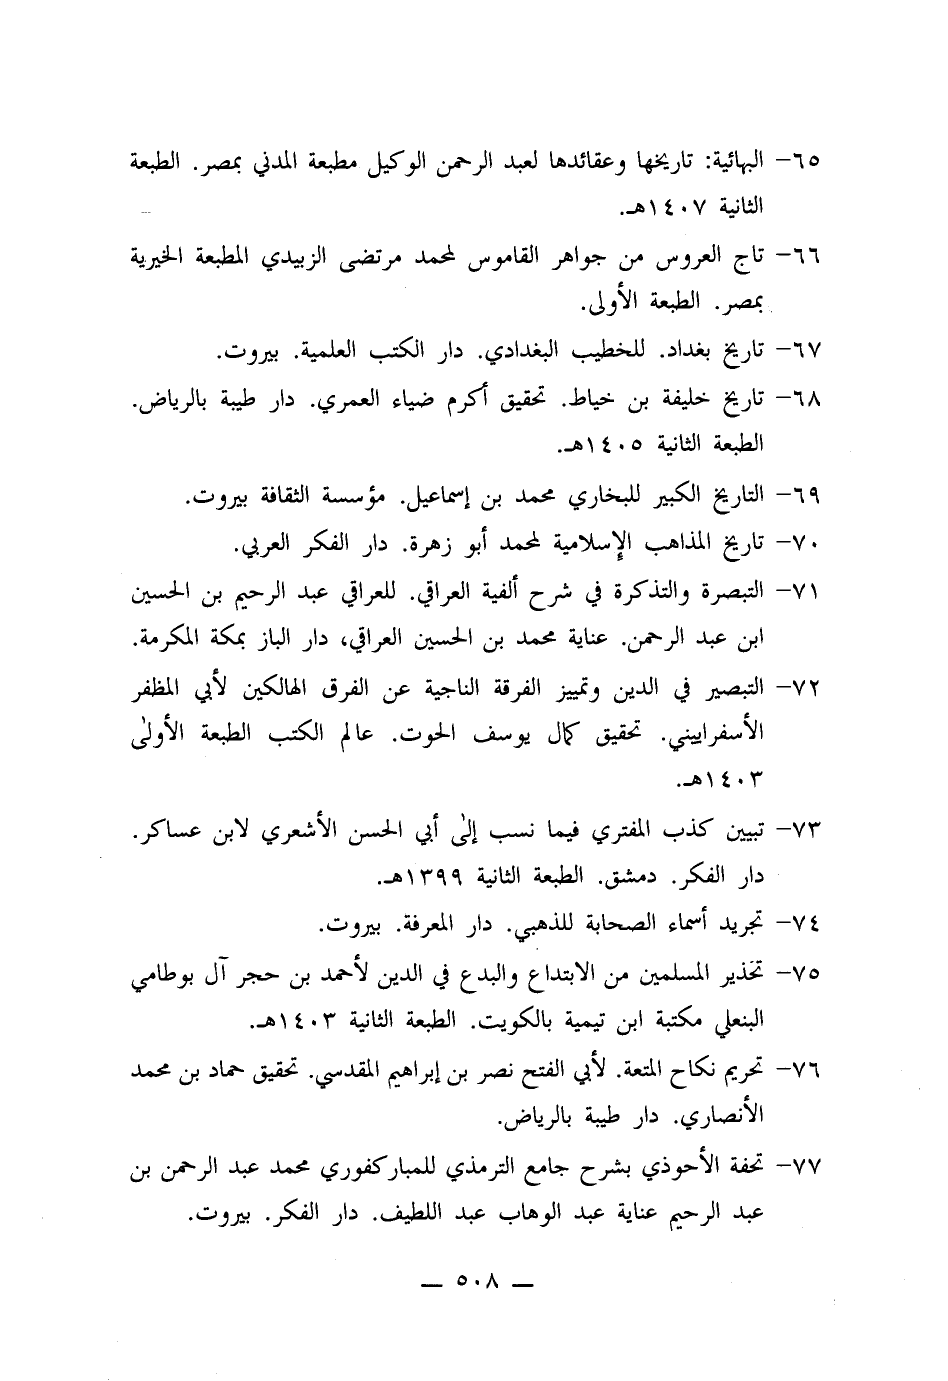 ٦٥- البهائية: تاريخها وعقائدها لعبد الرحمن الوكيل مطبعة المدني بمصر. الطبعة
الثانية ١٤٠٧هـ.
٦٦- تاج العروس من جواهر القاموس لمحمد مرتضى الزبيدي المطبعة الخيرية
بمصر. الطبعة الأولى.
٦٧- تاريخ بغداد. للخطيب البغدادي. دار الكتب العلمية. بيروت.
٦٨- تاريخ خليفة بن خياط. تحقيق أكرم ضياء العمري. دار طيبة بالرياض.
الطبعة الثانية ١٤٠٥هـ.
٦٩- التاريخ الكبير للبخاري محمد بن إسماعيل. مؤسسة الثقافة بيروت.
٧٠- تاريخ المذاهب الإسلامية لمحمد أبو زهرة. دار الفكر العربي.
٧١- التبصرة والتذكرة في شرح ألفية العراقي. للعراقي عبد الرحيم بن الحسين
ابن عبد الرحمن. عناية محمد بن الحسين العراقي، دار الباز بمكة المكرمة.
٧٢- التبصير في الدين وتمييز الفرقة الناجية عن الفرق الهالكين لأبي المظفر
الأسفراييني. تحقيق كمال يوسف الحوت. عالم الكتب الطبعة الأولىٰ
١٤٠٣هـ.
٧٣- تبيين كذب المفتري فيما نسب إلىٰ أبي الحسن الأشعري لابن عساكر.
دار الفكر. دمشق. الطبعة الثانية ١٣٩٩هـ.
٧٤- تجريد أسماء الصحابة للذهبي. دار المعرفة. بيروت.
٧٥- تحذير المسلمين من الابتداع والبدع في الدين لأحمد بن حجر آل بوطامي
البنعلي مكتبة ابن تيمية بالكويت. الطبعة الثانية ١٤٠٣هـ.
٧٦- تحريم نكاح المتعة. لأبي الفتح نصر بن إبراهيم المقدسي. تحقيق حماد بن محمد
الأنصاري. دار طيبة بالرياض.
٧٧- تحفة الأحوذي بشرح جامع الترمذي للمباركفوري محمد عبد الرحمن بن
عبد الرحيم عناية عبد الوهاب عبد اللطيف. دار الفكر. بيروت.
— ٥٠٨ —